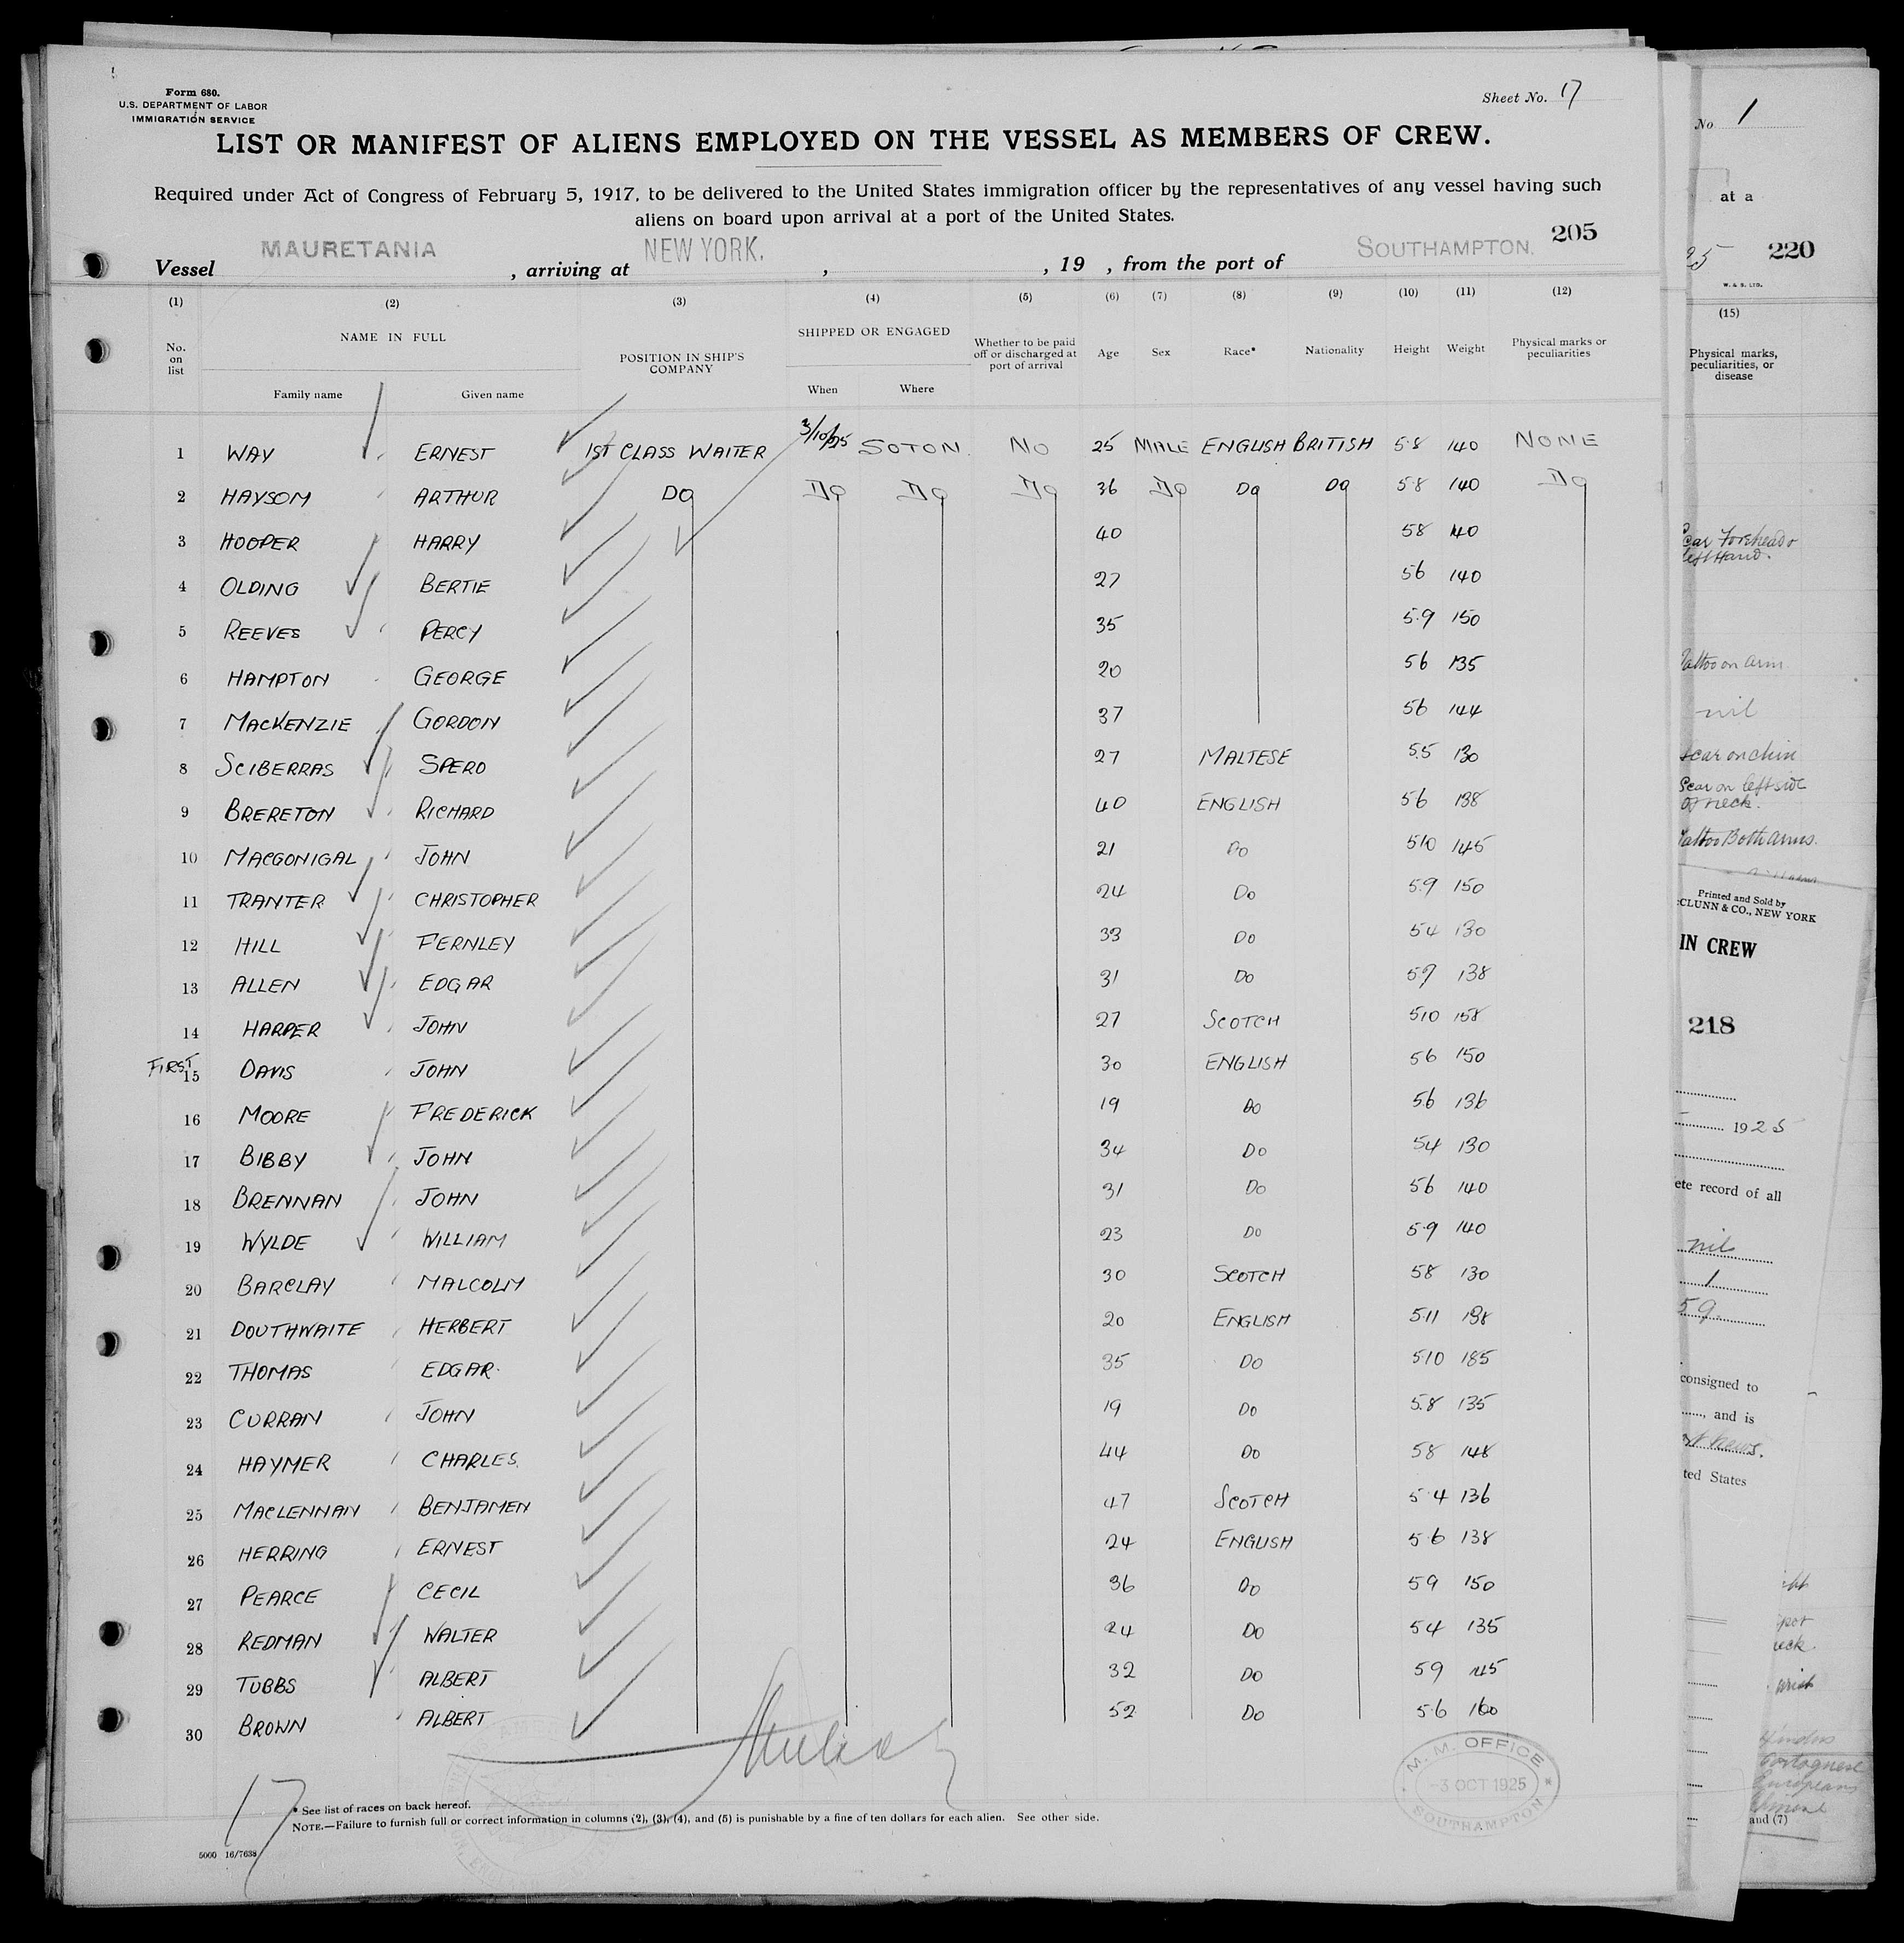 Form 680.
U.S. DEPARTMENT OF LABOR
IMMIGRATION SERVICE
Sheet No. 17
LIST OR MANIFEST OF ALIENS EMPLOYED ON THE VESSEL AS MEMBERS OF CREW.
Required under Act of Congress of February 5, 1917, to be delivered to the United States immigration officer by the representatives of any vessel having such
aliens on board upon arrival at a port of the United States.
205
Vessel MAURETANIA, arriving at NEW YORK. , , 19 , from the port of SOUTHAMPTON.
(1) (2) (3) (4) (5) (6) (7) (8) (9) (10) (11) (12)
No. on list NAME IN FULL Family name Given name POSITION IN SHIP'S COMPANY SHIPPED OR ENGAGED When Where Whether to be paid off or discharged at port of arrival Age Sex Race* Nationality Height Weight Physical marks or peculiarities
1 WAY ERNEST 1ST CLASS WAITER 3/10/25 SOTON. NO 25 MALE ENGLISH BRITISH 5.8 140 NONE
2 HAYSOM ARTHUR DO DO DO DO 36 DO DO DO 5.8 140 DO
3 HOOPER HARRY 40 58 140
4 OLDING BERTIE 27 56 140
5 REEVES PERCY 35 5.9 150
6 HAMPTON GEORGE 20 56 135
7 MACKENZIE GORDON 37 56 144
8 SCIBERRAS SPERO 27 MALTESE 5.5 130
9 BRERETON RICHARD 40 ENGLISH 56 138
10 MACGONIGAL JOHN 21 DO 510 145
11 TRANTER CHRISTOPHER 24 DO 5.9 150
12 HILL FERNLEY 33 DO 54 130
13 ALLEN EDGAR 31 DO 59 138
14 HARPER JOHN 27 SCOTCH 510 158
FIRST 15 DAVIS JOHN 30 ENGLISH 56 150
16 MOORE FREDERICK 19 DO 56 136
17 BIBBY JOHN 34 DO 54 130
18 BRENNAN JOHN 31 DO 56 140
19 WYLDE WILLIAM 23 DO 5.9 140
20 BARCLAY MALCOLM 30 SCOTCH 58 130
21 DOUTHWAITE HERBERT 20 ENGLISH 5.11 198
22 THOMAS EDGAR. 35 DO 5.10 185
23 CURRAN JOHN 19 DO 5.8 135
24 HAYMER CHARLES. 44 DO 58 148
25 MACLENNAN BENJAMEN 47 SCOTCH 5.4 136
26 HERRING ERNEST 24 ENGLISH 5.6 138
27 PEARCE CECIL 36 DO 59 150
28 REDMAN WALTER 24 DO 54 135
29 TUBBS ALBERT 32 DO 59 145
30 BROWN ALBERT 52 DO 5.6 160
M.M. OFFICE
-3 OCT 1925
SOUTHAMPTON
17
* See list of races on back hereof.
NOTE.—Failure to furnish full or correct information in columns (2), (3), (4), and (5) is punishable by a fine of ten dollars for each alien. See other side.
5000 16/7638
No 1
at a
25 220
W. & S. LTD.
(15)
Physical marks,
peculiarities, or
disease
Scar Forehead &
left Hand.
Tattoo on arm
nil
scar on chin
Scar on left side
of neck.
Tattoo Both arms.
Printed and Sold by
CLUNN & CO., NEW YORK
IN CREW
218
1925
ete record of all
nil
1
59
consigned to
, and is
ted States
and (7)